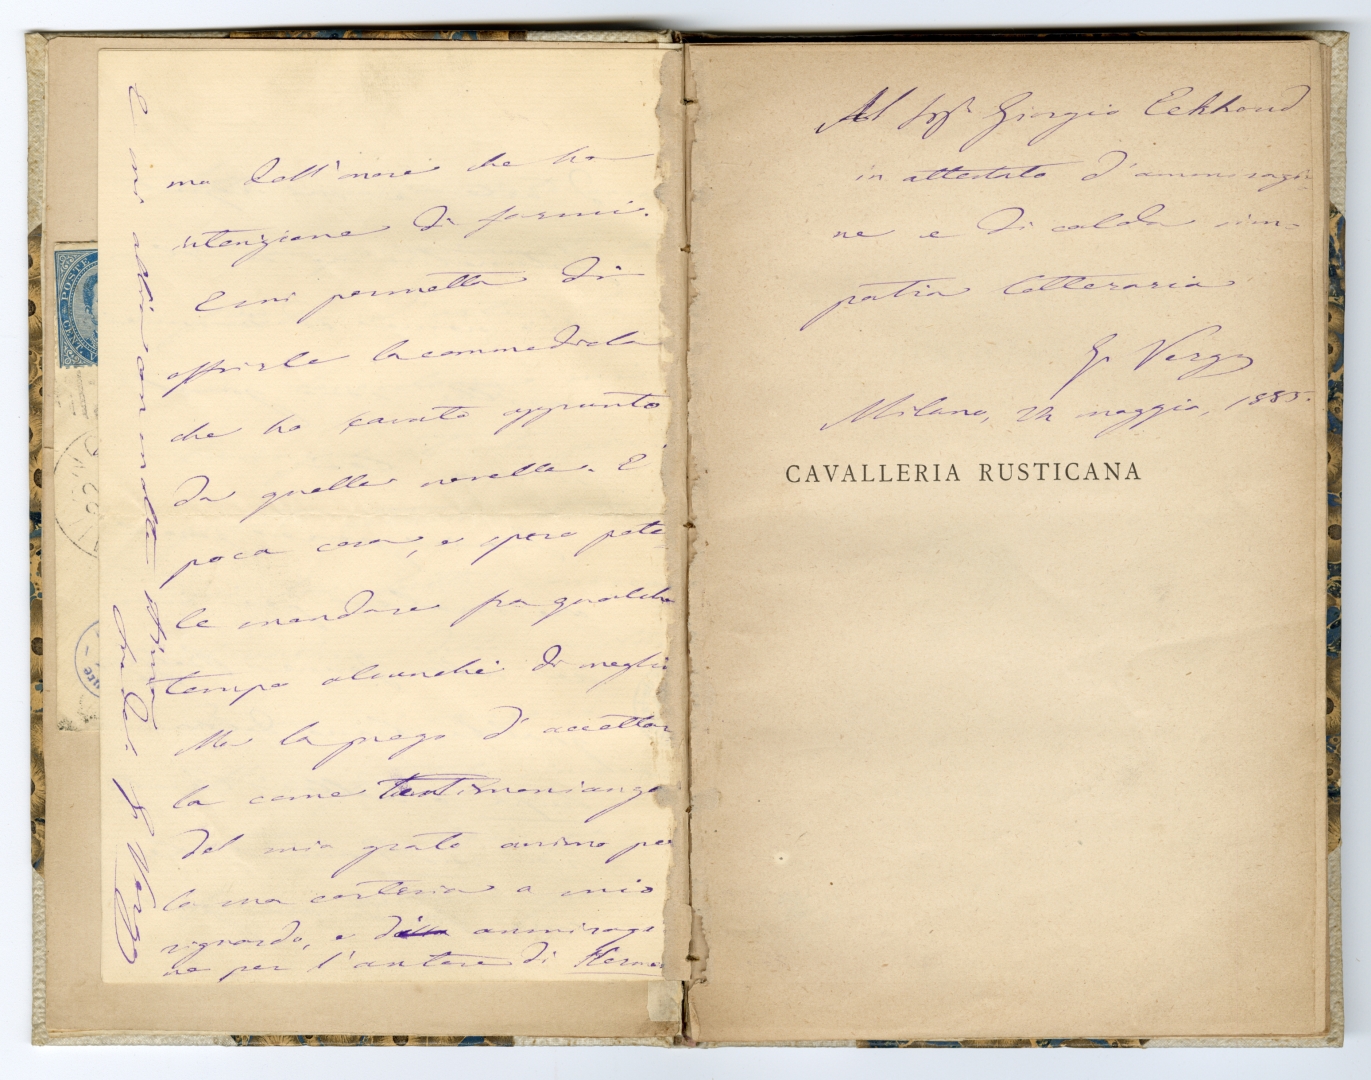 ma dell'onore che ha
intenzione di farmi.
E mi permetta di
offrirle la commediola
che ho cavato appunto
da quella novella. È
poca cosa, e spero poter
le mandare fra qualche
tempo alcunchè di meglio
Ma la prego d'accettar
la come testimonianza
del mio grato animo per
la sua cortesia a mio
riguardo, e della ammirazio
ne per l'autore di Kermes
E mi abbia con molta stima
G Verga
POSTE
Al Sigr Giorgio Eekhoud
in attestato d'ammirazio
ne e di calda sim-
patia letteraria
G. Verga
Milano, 24 maggio, 1885.
CAVALLERIA RUSTICANA